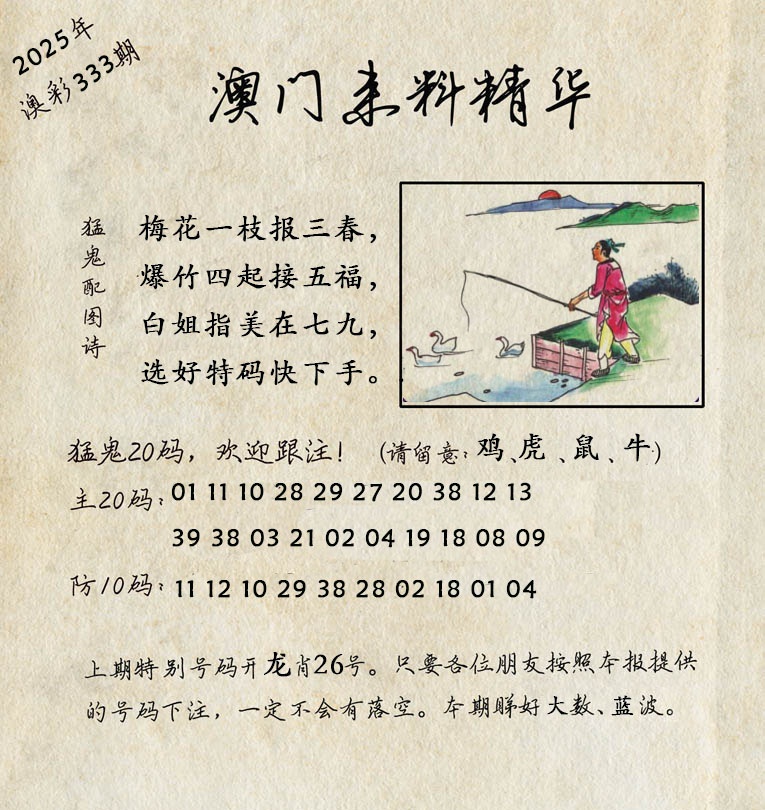 2025年
澳彩333期
澳门来料精华
猛鬼配图诗
梅花一枝报三春，
爆竹四起接五福，
白姐指美在七九，
选好特码快下手。
猛鬼20码，欢迎跟注！（请留意：鸡、虎、鼠、牛）
主20码：01 11 10 28 29 27 20 38 12 13
39 38 03 21 02 04 19 18 08 09
防10码：11 12 10 29 38 28 02 18 01 04
上期特别号码开龙肖26号。只要各位朋友按照本报提供
的号码下注，一定不会有落空。本期睇好大数、蓝波。